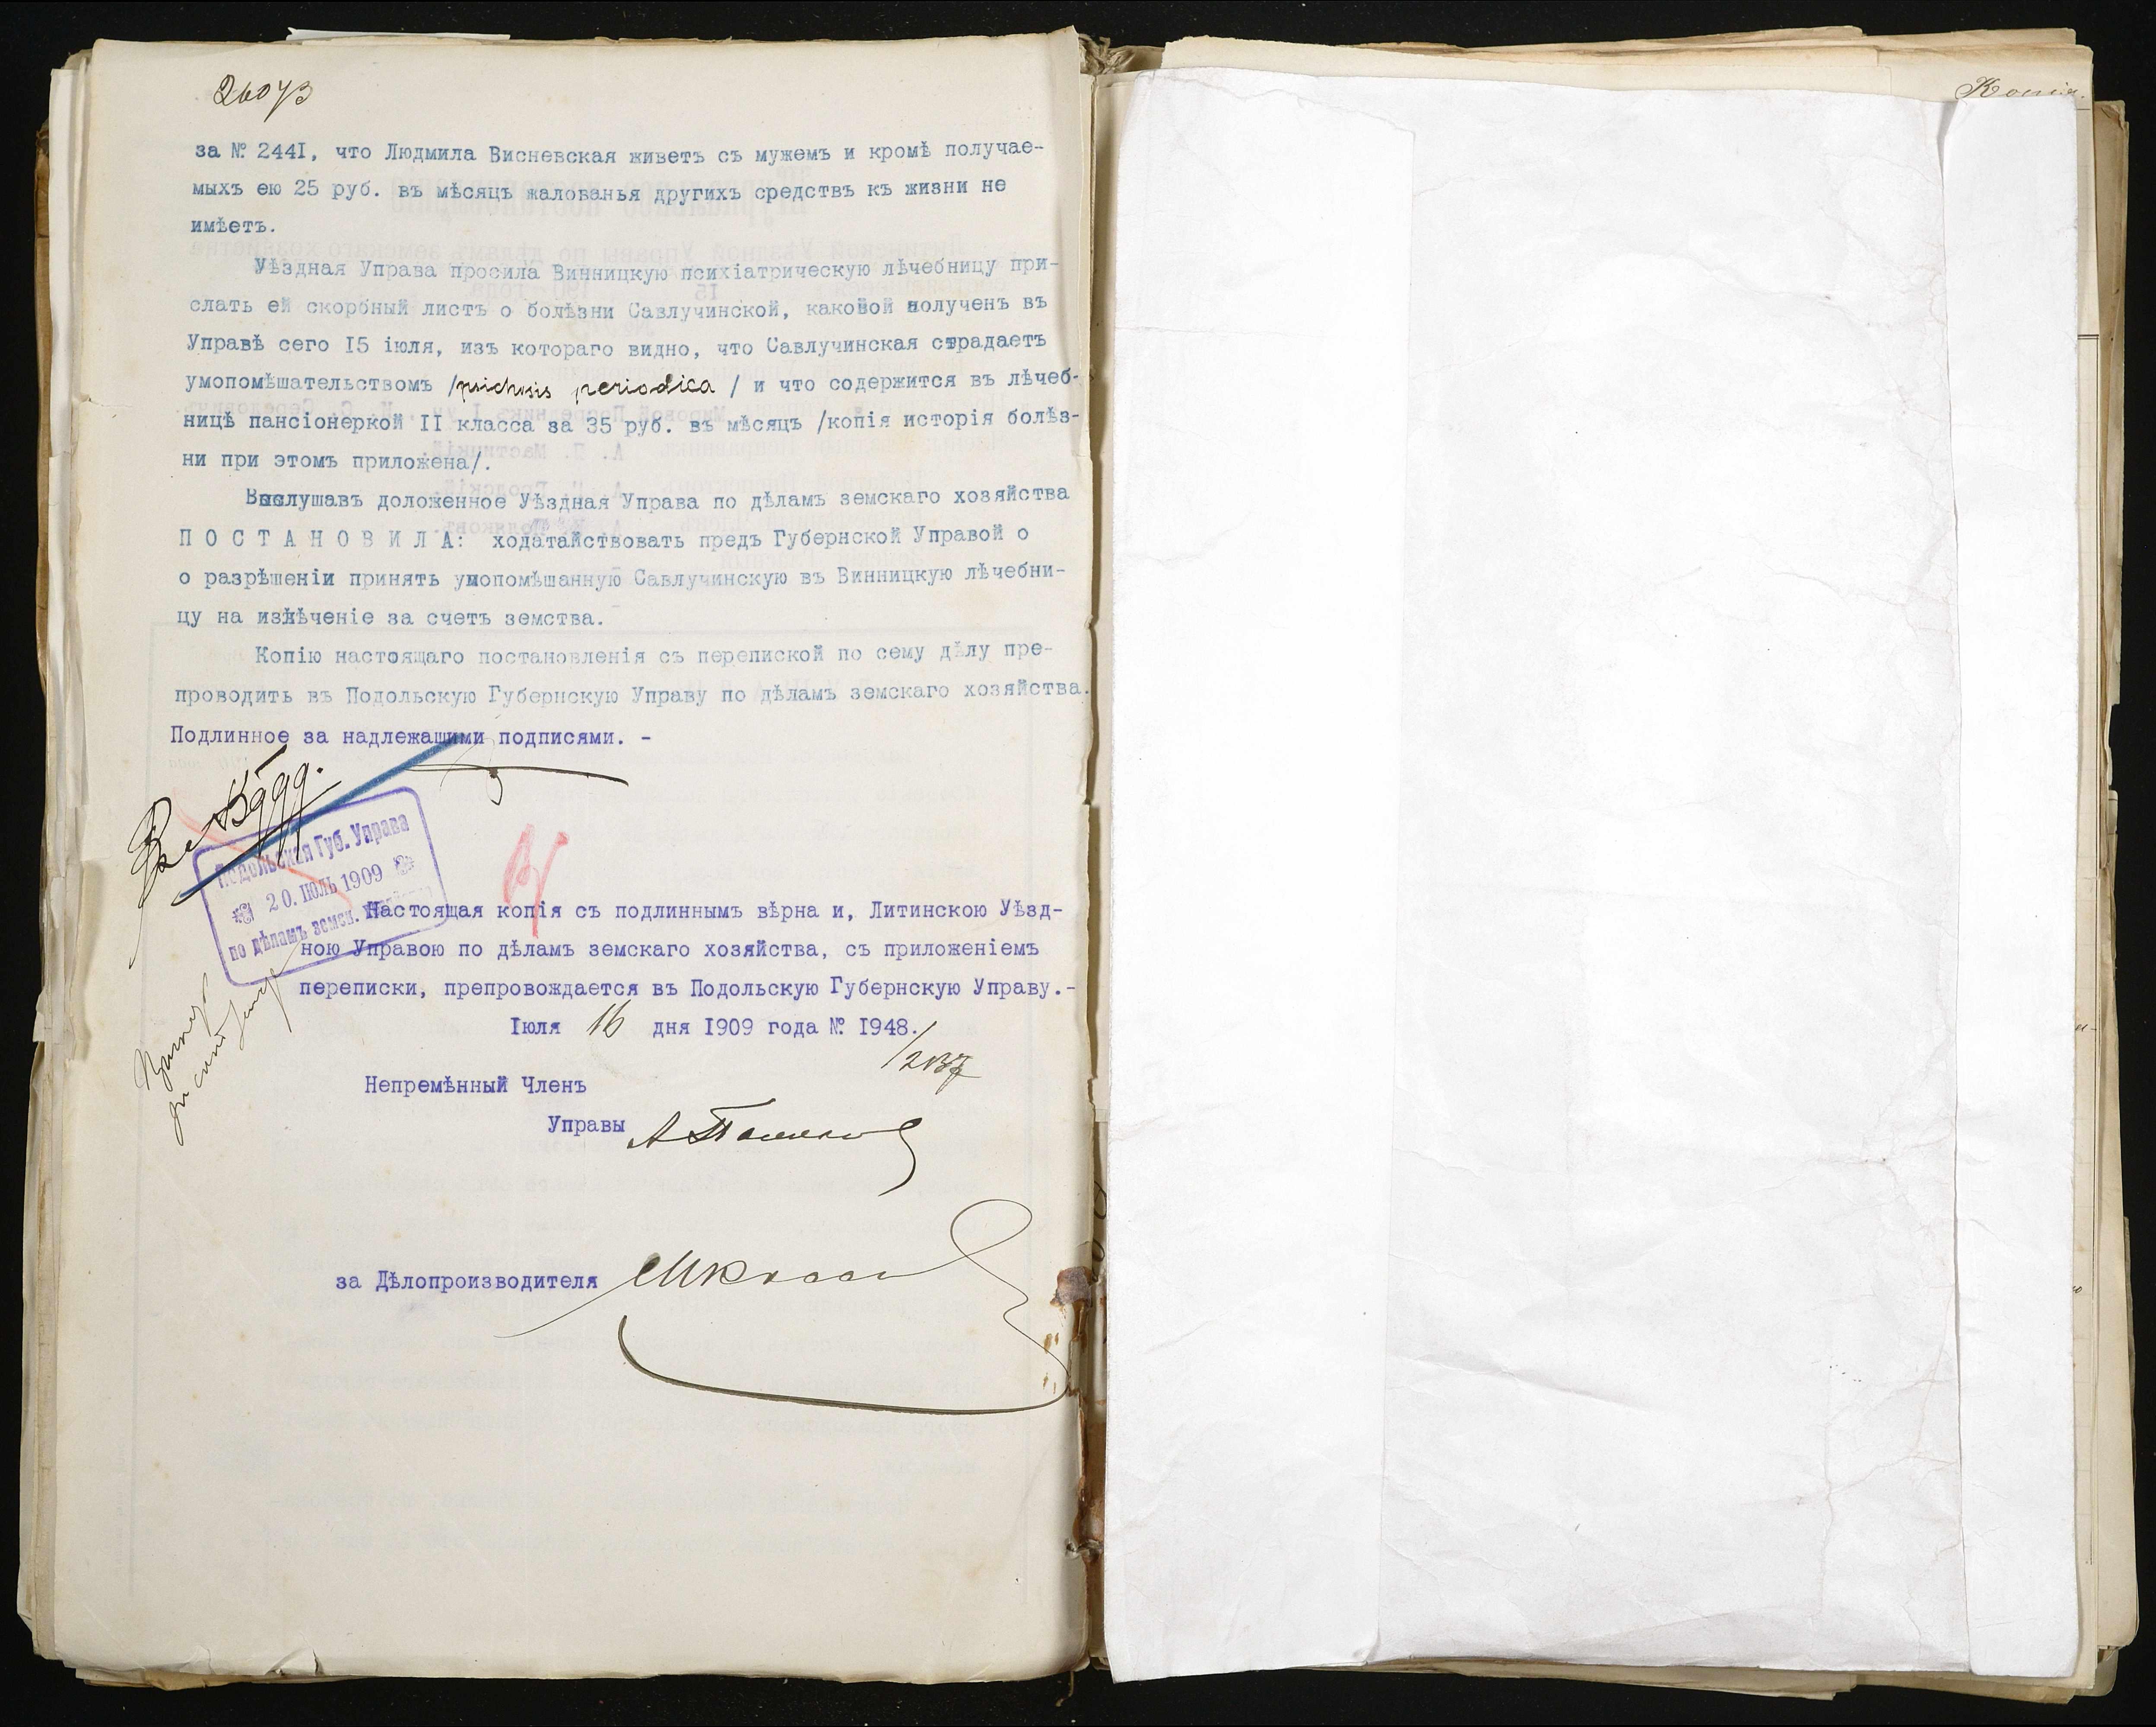 26073
за № 244I, что Людмила Висневская живетъ съ мужемъ и кромѣ получае-
мыхъ ею 25 руб. въ мѣсяцъ жалованья другихъ средствъ къ жизни не
имѣетъ.
Уѣздная Управа просила Винницкую психіатрическую лѣчебницу при-
слать ей скорбный листъ о болѣзни Савлучинской, каковой полученъ въ
Управѣ сего I5 іюля, изъ котораго видно, что Савлучинская страдаетъ
умопомѣшательствомъ /psichosis periodica / и что содержится въ лѣчеб-
ницѣ пансіонеркой II класса за 35 руб. въ мѣсяцъ /копія исторія болѣз-
ни при этомъ приложена/.
Выслушавъ доложенное Уѣздная Управа по дѣламъ земскаго хозяйства
П О С Т А Н О В И Л А: ходатайствовать предъ Губернской Управой о
о разрѣшеніи принять умопомѣшанную Савлучинскую въ Винницкую лѣчебни-
цу на излѣченіе за счетъ земства.
Копію настоящаго постановленія съ перепиской по сему дѣлу пре-
проводить въ Подольскую Губернскую Управу по дѣламъ земскаго хозяйства.
Подлинное за надлежащими подписями. -
Подольская Губ. Управа
20. ІЮЛЬ 1909
по дѣламъ земск.
Настоящая копія съ подлиннымъ вѣрна и, Литинскою Уѣзд-
ною Управою по дѣламъ земскаго хозяйства, съ приложеніемъ
переписки, препровождается въ Подольскую Губернскую Управу.-
Іюля 16 дня I909 года № I948.
Непремѣнный Членъ
Управы
за Дѣлопроизводителя
Копія.